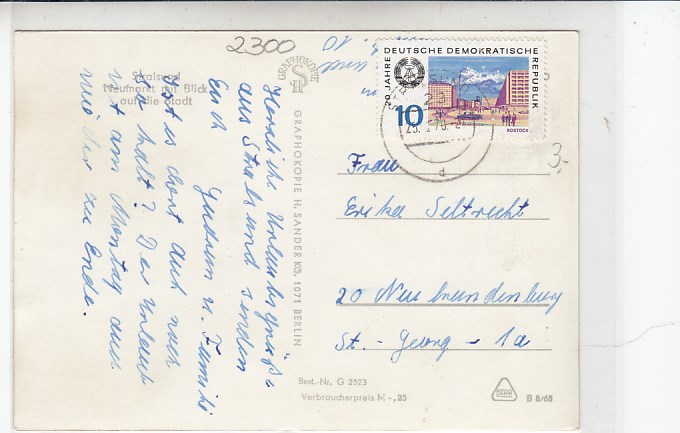 2300
Stralsund
Neumarkt mit Blick
auf die Stadt
Herzliche Urlaubsgrüße
aus Stralsund senden
Euch
Gudrun u. Familie
Ist es dort auch noch
so kalt? Der Urlaub
ist am Montag auch
wieder zu Ende.
GRAPHOKOPIE
GRAPHOKOPIE H. SANDER KG, 1071 BERLIN
20 JAHRE DEUTSCHE DEMOKRATISCHE REPUBLIK
10
ROSTOCK
d
3,-
Frau
Erika Seltrecht
20 Neubrandenburg
St.-Georg- 1a
Best.-Nr. G 2523
Verbraucherpreis M -,25
B 8/68